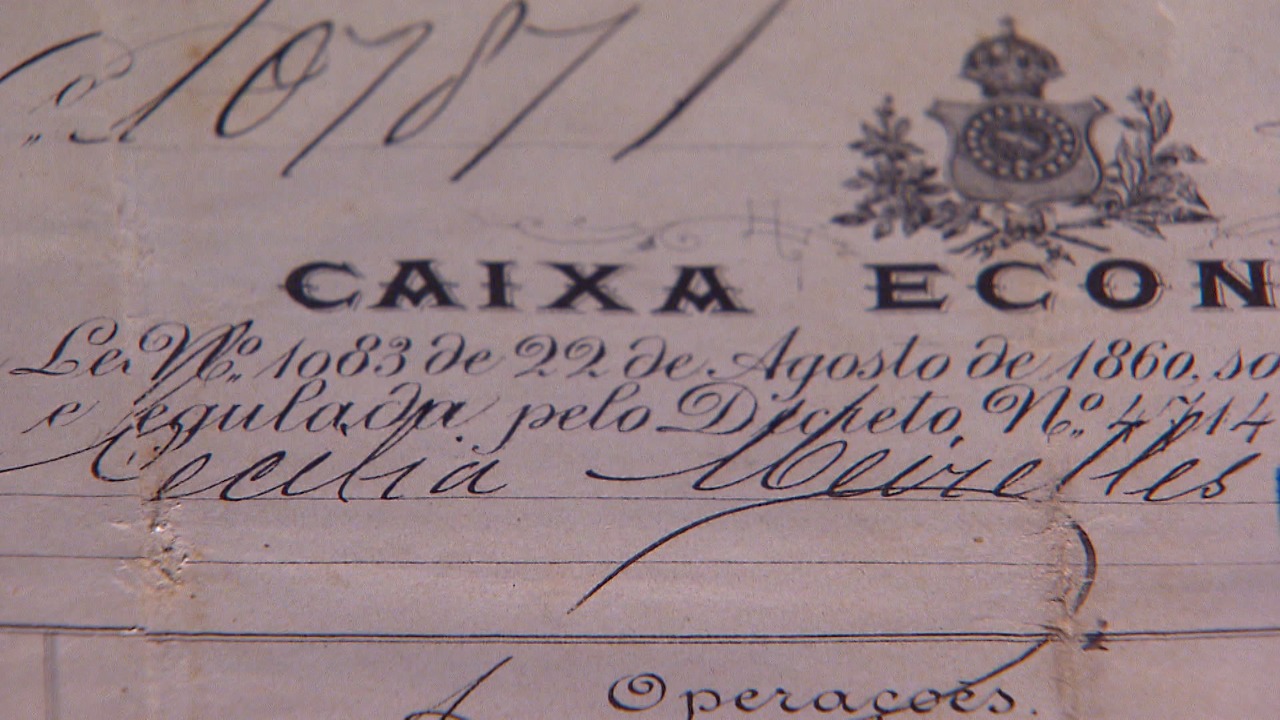 10787
CAIXA ECON
Lei Nº. 1083 de 22 de Agosto de 1860, so
e regulada pelo Decreto, Nº. 4714
Cecilia Meirelles
Operações.